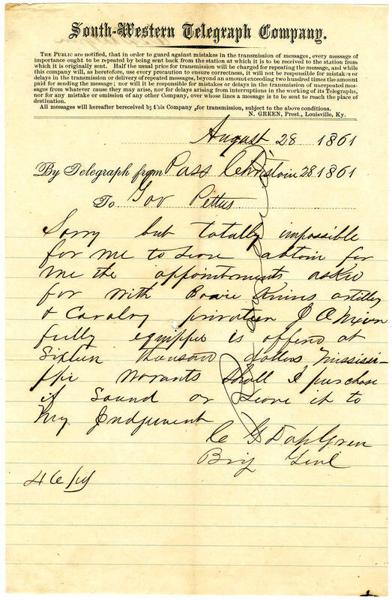 South-Western Telegraph Company.
THE PUBLIC are notified, that in order to guard against mistakes in the transmission of messages, every message of
importance ought to be repeated by being sent back from the station at which it is to be received to the station from
which it is originally sent. Half the usual price for transmission will be charged for repeating the message, and while
this company will, as heretofore, use every precaution to ensure correctness, it will not be responsible for mistakes or
delays in the transmission or delivery of repeated messages, beyond an amount exceeding two hundred times the amount
paid for sending the message; nor will it be responsible for mistakes or delays in the transmission of unrepeated mes-
sages from whatever cause they may arise, nor for delays arising from interruptions in the working of its Telegraph,
nor for any mistake or omission of any other Company, over whose lines a message is to be sent to reach the place of
destination.
All messages will hereafter be received by this Company for transmission, subject to the above conditions.
N. GREEN, Prest., Louisville, Ky.
August 28 1861
By Telegraph from Pass Christain 28 1861
To Gov Pettus
Sorry but totally impossible
for me to
for
me the appointments asked
for with
artillery
& Cavalry privateer J O Nixon
fully equippe is offerd at
Sixteen thousand dollars Mississi-
ppi Warrants Shall I purchase
if Sound or leave it to
my Judgement
C G Dahlgren
Brig Genl
46/